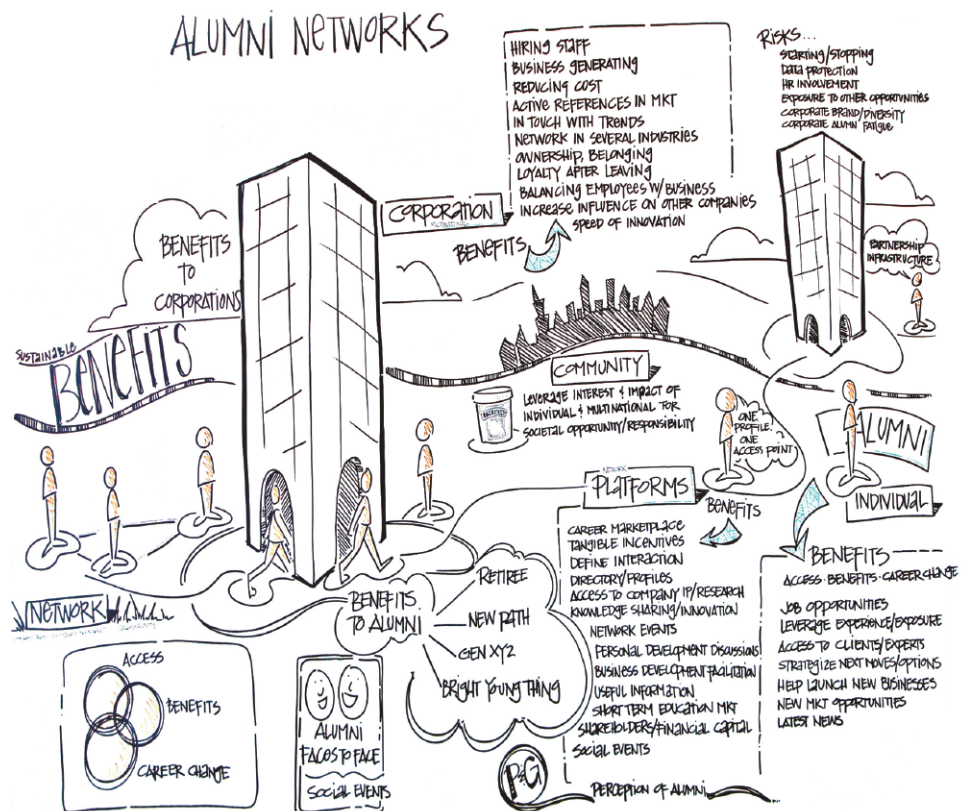 ALUMNI NETWORKS
HIRING STAFF
BUSINESS GENERATING
REDUCING COST
ACTIVE REFERENCES IN MKT
IN TOUCH WITH TRENDS
NETWORK IN SEVERAL INDUSTRIES
OWNERSHIP, BELONGING
LOYALTY AFTER LEAVING
BALANCING EMPLOYEES W/ BUSINESS
INCREASE INFLUENCE ON OTHER COMPANIES
SPEED OF INNOVATION
CORPORATION
BENEFITS
RISKS...
STARTING/STOPPING
DATA PROTECTION
HR INVOLVEMENT
EXPOSURE TO OTHER OPPORTUNITIES
CORPORATE BRAND/DIVERSITY
CORPORATE ALUMNI FATIGUE
PARTNERSHIP
INFRASTRUCTURE
BENEFITS
TO
CORPORATIONS
SUSTAINABLE
BENEFITS
COMMUNITY
LEVERAGE INTEREST & IMPACT OF
INDIVIDUAL & MULTINATIONAL FOR
SOCIETAL OPPORTUNITY/RESPONSIBILITY
ONE
PROFILE,
ONE
ACCESS POINT
ALUMNI
INDIVIDUAL
NETWORK
PLATFORMS
BENEFITS
CAREER MARKETPLACE
TANGIBLE INCENTIVES
DEFINE INTERACTION
DIRECTORY/PROFILES
ACCESS TO COMPANY IP/RESEARCH
KNOWLEDGE SHARING/INNOVATION
NETWORK EVENTS
PERSONAL DEVELOPMENT DISCUSSIONS
BUSINESS DEVELOPMENT FACILITATION
USEFUL INFORMATION
SHORT TERM EDUCATION MKT
SHAREHOLDERS/FINANCIAL CAPITAL
SOCIAL EVENTS
PERCEPTION OF ALUMNI
BENEFITS
ACCESS · BENEFITS · CAREER CHANGE
JOB OPPORTUNITIES
LEVERAGE EXPERIENCE/EXPOSURE
ACCESS TO CLIENTS/EXPERTS
STRATEGIZE NEXT MOVES/OPTIONS
HELP LAUNCH NEW BISINESSES
NEW MKT OPPORTUNITIES
LATEST NEWS
NETWORK
BENEFITS
TO ALUMNI
RETIREE
NEW PATH
GEN XYZ
BRIGHT YOUNG THING
ACCESS
BENEFITS
CAREER CHANGE
ALUMNI
FACES TO FACE
SOCIAL EVENTS
P&G